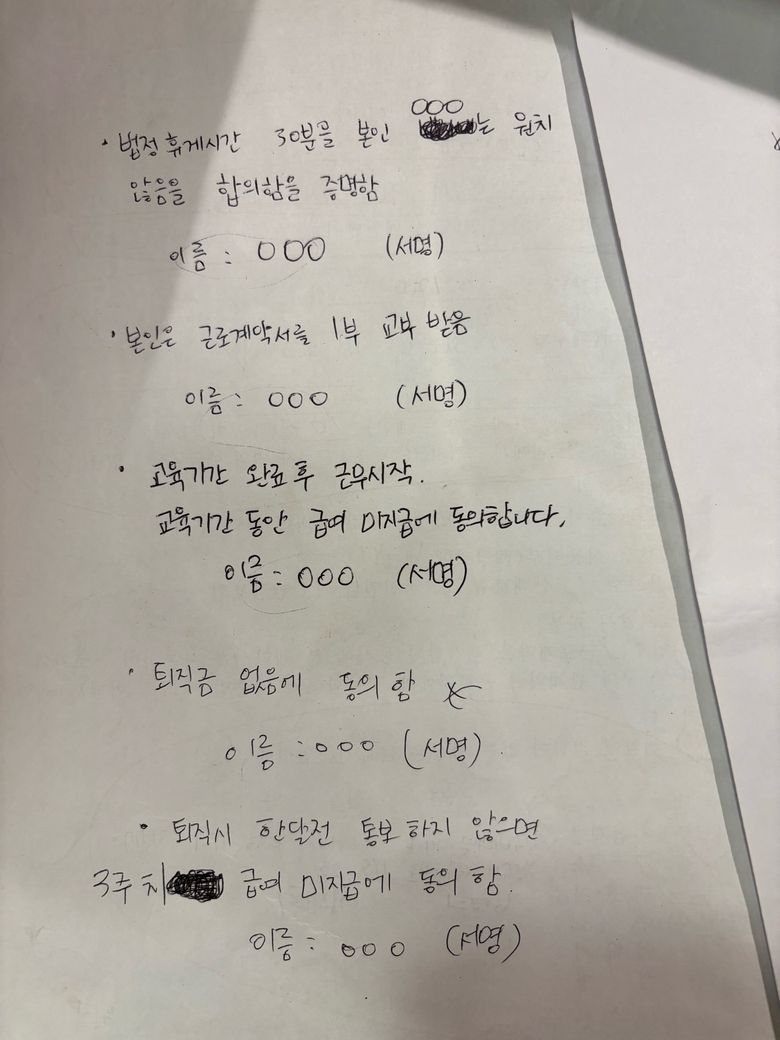 · 법정 휴게시간 30분을 본인 OOO는 원치
않음을 합의함을 증명함
이름 : OOO (서명)
· 본인은 근로계약서를 1부 교부 받음
이름 : OOO (서명)
· 교육기간 완료 후 근무시작.
교육기간 동안 급여 미지급에 동의합니다.
이름 : OOO (서명)
· 퇴직금 없음에 동의 함
이름 : OOO (서명)
· 퇴직시 한달전 통보 하지 않으면
3주 치 급여 미지급에 동의 함.
이름 : OOO (서명)